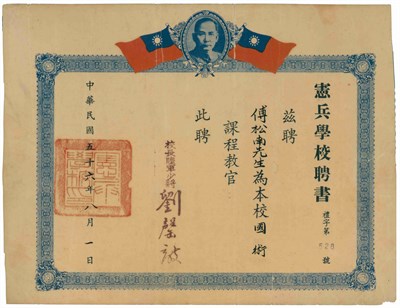 憲兵學校聘書
禮字第 528 號
茲聘
傅松南先生為本校國術
課程教官
此聘
校長陸軍少將 劉
中華民國五十六年八月一日